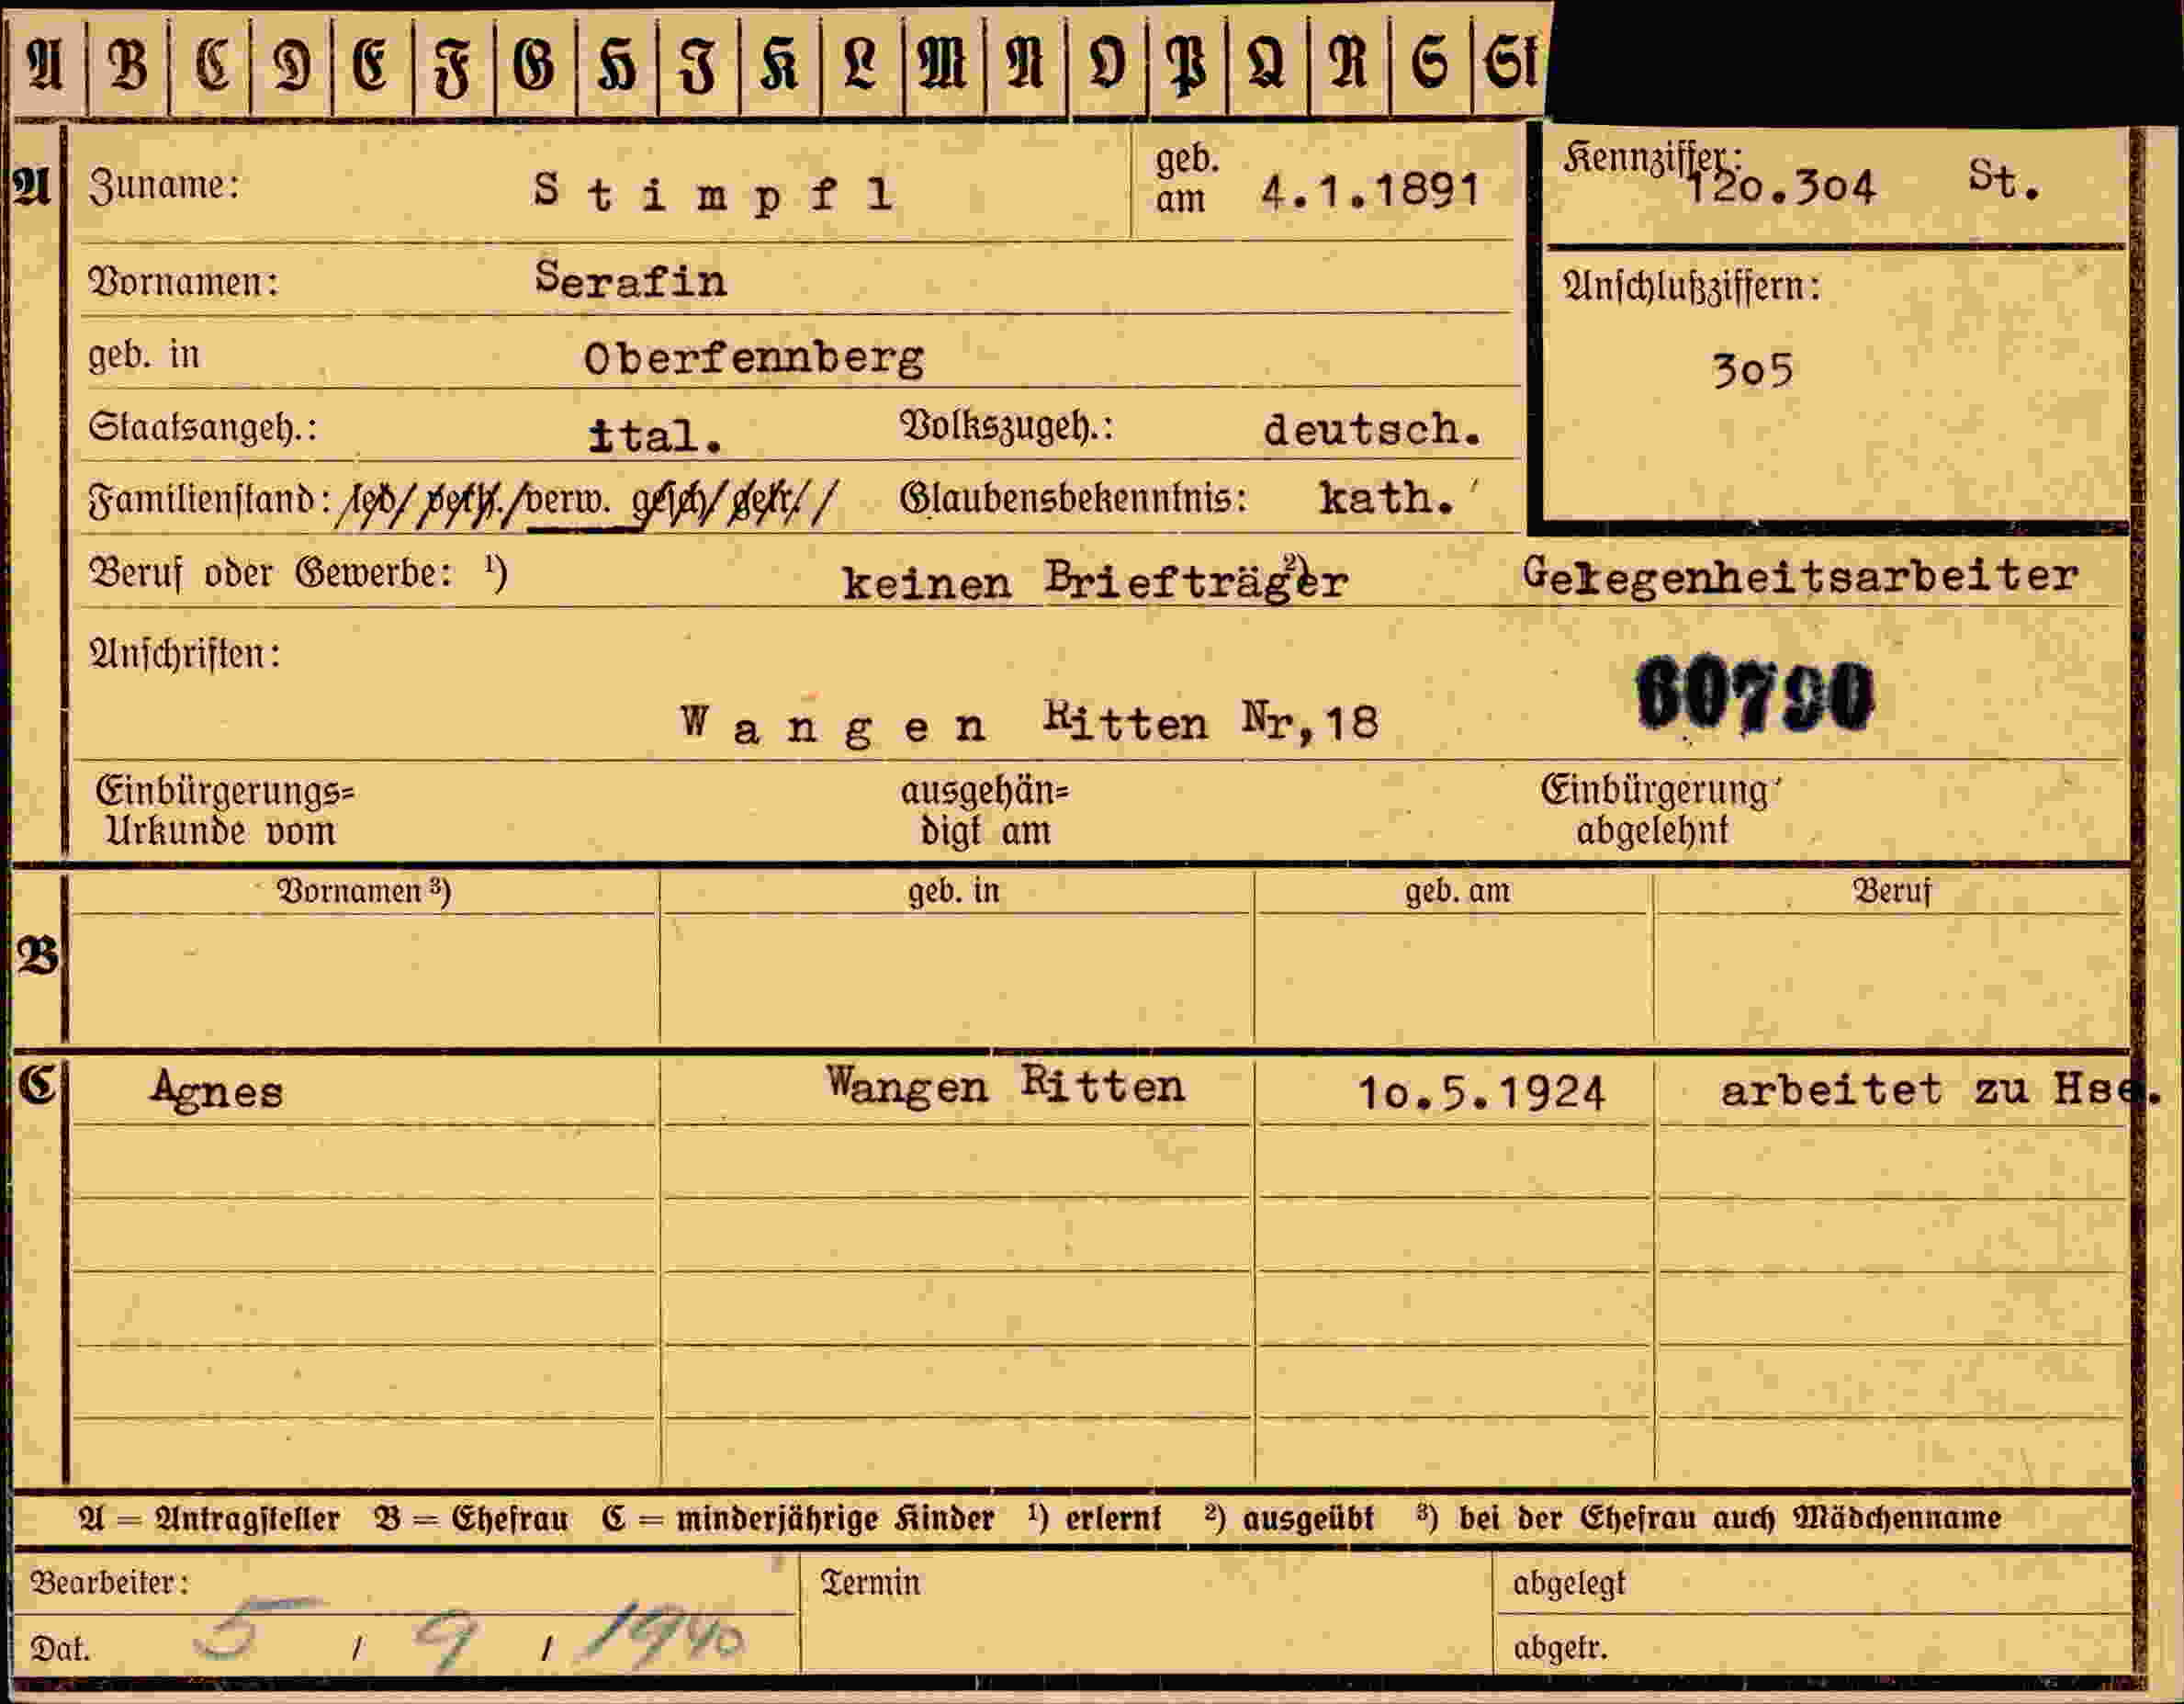 A B C D E F G H I K L M N O P Q R S St
A Zuname: Stimpfl geb. am 4.1.1891 Kennziffer: 120.304 St.
Vornamen: Serafin
Anschlußziffern:
geb. in Oberfennberg
305
Staatsangeh.: ital. Volkszugeh.: deutsch.
Familienstand: led/ verh./verw. gesch/ getr./ Glaubensbekenntnis: kath.
Beruf oder Gewerbe: ¹) keinen Briefträger ²) Gelegenheitsarbeiter
Anschriften:
60790
Wangen Ritten Nr,18
Einbürgerungs= ausgehän= Einbürgerung
Urkunde vom digt am abgelehnt
Vornamen ³) geb. in geb. am Beruf
B
C Agnes Wangen Ritten 10.5.1924 arbeitet zu Hse.
A = Antragsteller B = Ehefrau C = minderjährige Kinder ¹) erlernt ²) ausgeübt ³) bei der Ehefrau auch Mädchenname
Bearbeiter: Termin abgelegt
Dat. 5 / 9 / 1940 abgetr.